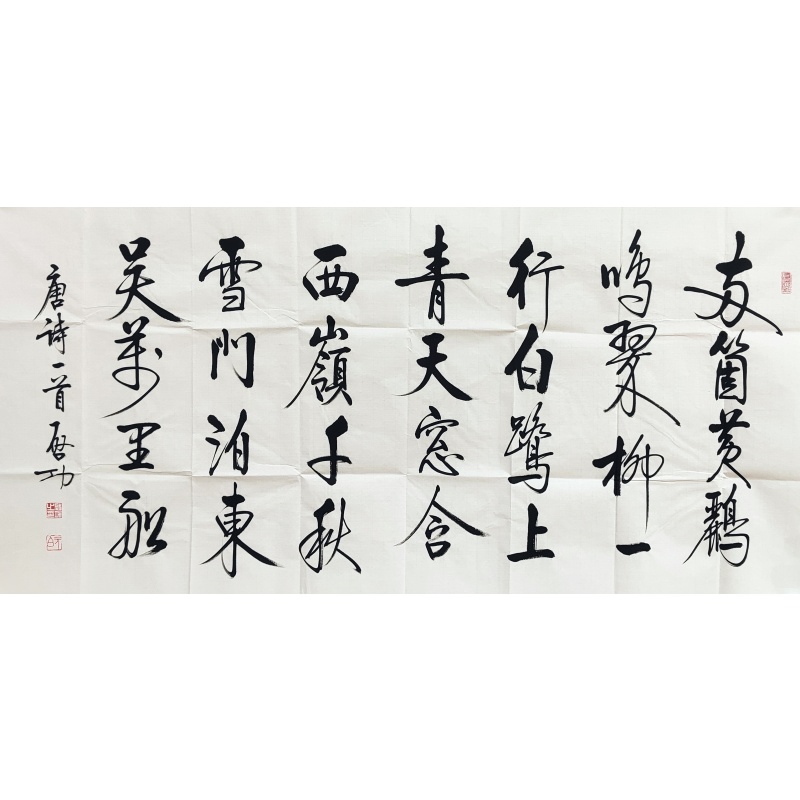 两箇黄鸝
鳴翠柳一
行白鷺上
青天窓含
西嶺千秋
雪門泊東
吴萬里船
唐詩一首啓功